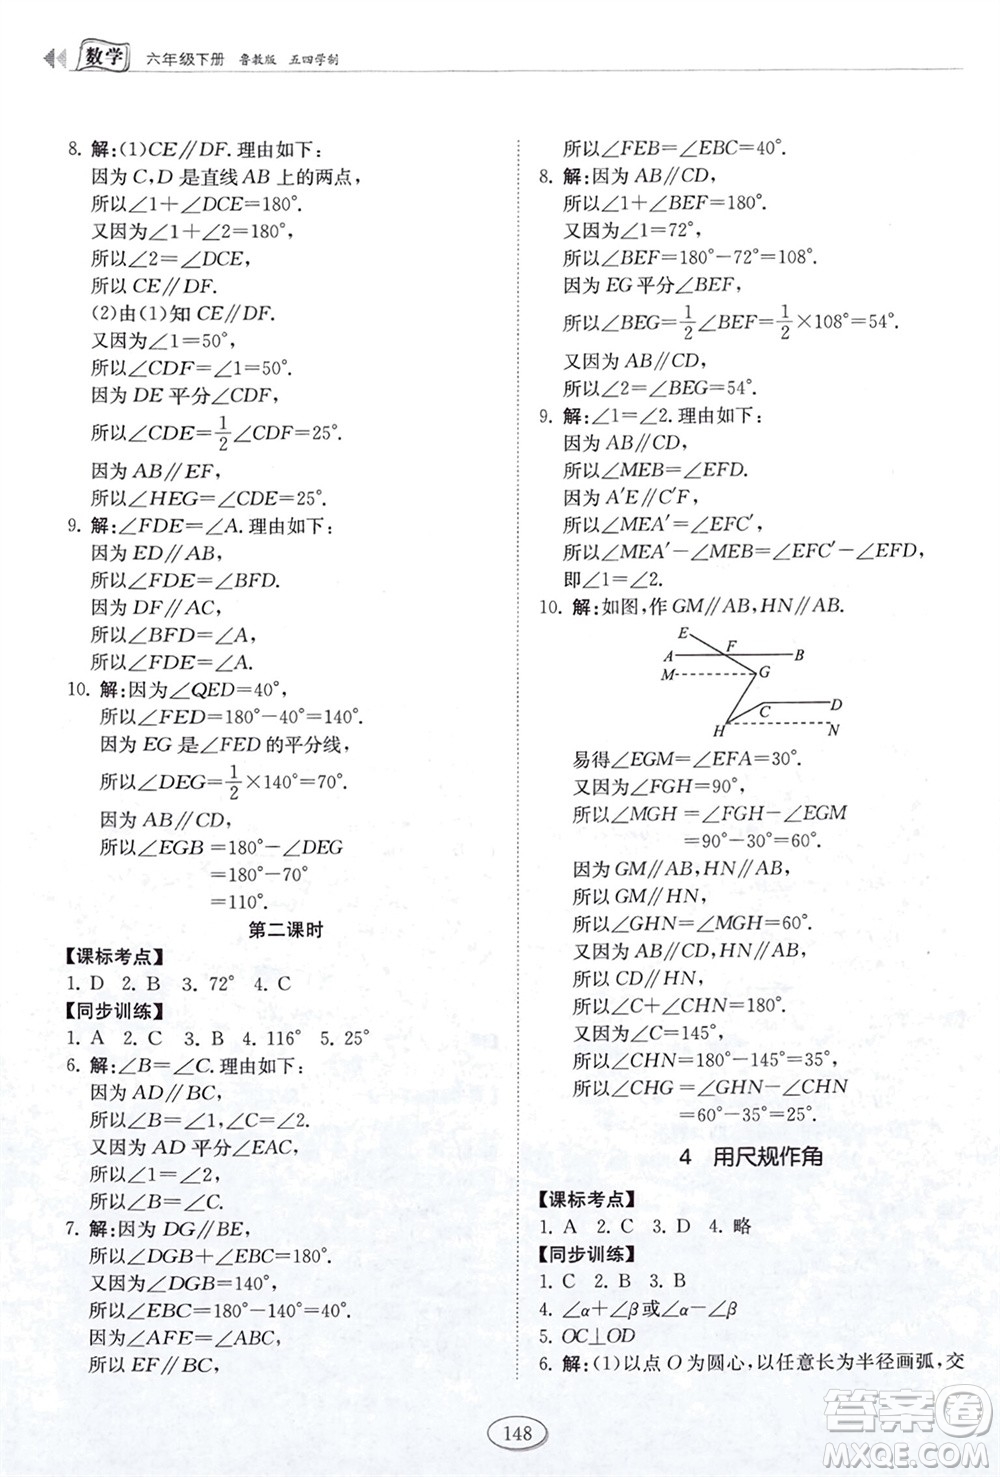 数学 六年级下册 鲁教版 五四学制
8. 解:(1)CE∥DF.理由如下:
因为 C,D 是直线 AB 上的两点,
所以∠1+∠DCE=180°.
又因为∠1+∠2=180°,
所以∠2=∠DCE,
所以 CE∥DF.
(2)由(1)知 CE∥DF.
又因为∠1=50°,
所以∠CDF=∠1=50°.
因为 DE 平分∠CDF,
所以∠CDE=1/2∠CDF=25°.
因为 AB∥EF,
所以∠HEG=∠CDE=25°.
9. 解:∠FDE=∠A.理由如下:
因为 ED∥AB,
所以∠FDE=∠BFD.
因为 DF∥AC,
所以∠BFD=∠A,
所以∠FDE=∠A.
10. 解:因为∠QED=40°,
所以∠FED=180°-40°=140°.
因为 EG 是∠FED 的平分线,
所以∠DEG=1/2×140°=70°.
因为 AB∥CD,
所以∠EGB=180°-∠DEG
=180°-70°
=110°.
第二课时
【课标考点】
1. D 2. B 3. 72° 4. C
【同步训练】
1. A 2. C 3. B 4. 116° 5. 25°
6. 解:∠B=∠C.理由如下:
因为 AD∥BC,
所以∠B=∠1,∠C=∠2,
又因为 AD 平分∠EAC,
所以∠1=∠2,
所以∠B=∠C.
7. 解:因为 DG∥BE,
所以∠DGB+∠EBC=180°.
又因为∠DGB=140°,
所以∠EBC=180°-140°=40°.
又因为∠AFE=∠ABC,
所以 EF∥BC,
所以∠FEB=∠EBC=40°.
8. 解:因为 AB∥CD,
所以∠1+∠BEF=180°.
又因为∠1=72°,
所以∠BEF=180°-72°=108°.
因为 EG 平分∠BEF,
所以∠BEG=1/2∠BEF=1/2×108°=54°.
又因为 AB∥CD,
所以∠2=∠BEG=54°.
9. 解:∠1=∠2.理由如下:
因为 AB∥CD,
所以∠MEB=∠EFD.
因为 A′E∥C′F,
所以∠MEA′=∠EFC′,
所以∠MEA′-∠MEB=∠EFC′-∠EFD,
即∠1=∠2.
10. 解:如图,作 GM∥AB,HN∥AB.
E
A F B
M G
C D
H N
易得∠EGM=∠EFA=30°.
又因为∠FGH=90°,
所以∠MGH=∠FGH-∠EGM
=90°-30°=60°.
因为 GM∥AB,HN∥AB,
所以 GM∥HN,
所以∠GHN=∠MGH=60°.
又因为 AB∥CD,
所以 CD∥HN,
所以∠C+∠CHN=180°.
又因为∠C=145°,
所以∠CHN=180°-145°=35°,
所以∠CHG=∠GHN-∠CHN
=60°-35°=25°.
4 用尺规作角
【课标考点】
1. A 2. C 3. D 4. 略
【同步训练】
1. C 2. B 3. B
4. ∠α+∠β或∠α-∠β
5. OC⊥OD
6. 解:(1)以点 O 为圆心,以任意长为半径画弧,交
148
答案圈
MXQE.COM